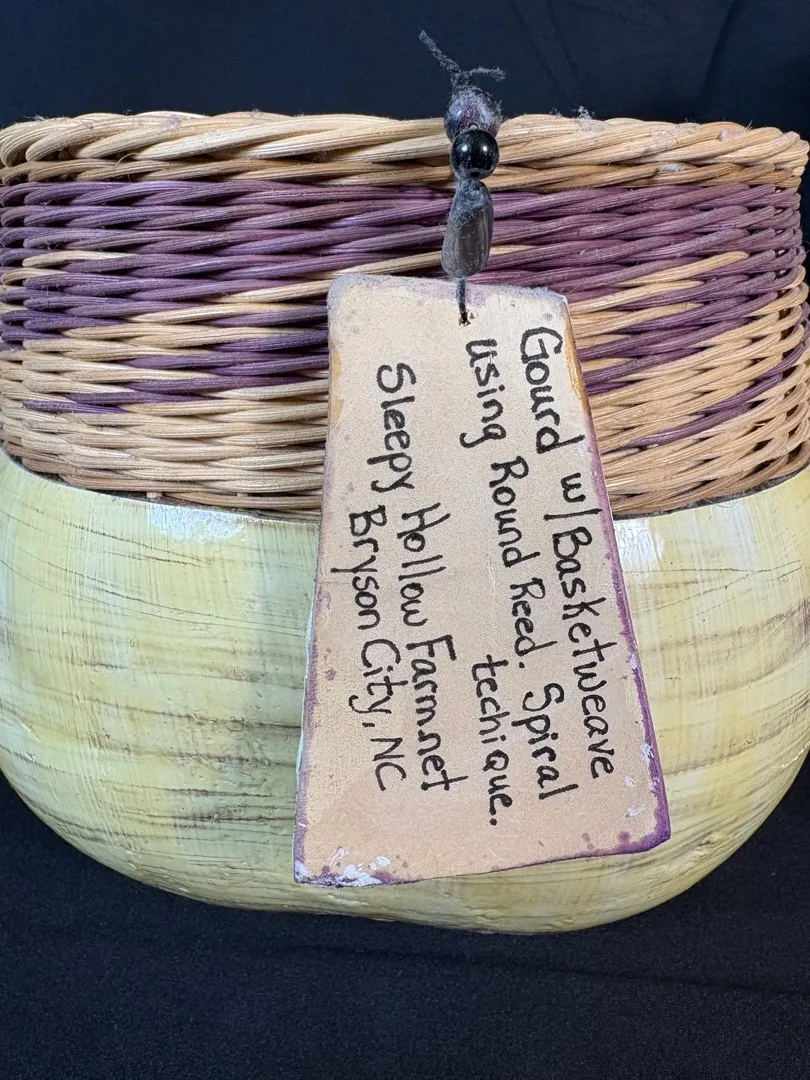 Gourd w/Basketweave
using Round Reed. Spiral
techique.
Sleepy Hollow Farm.net
Bryson City, NC